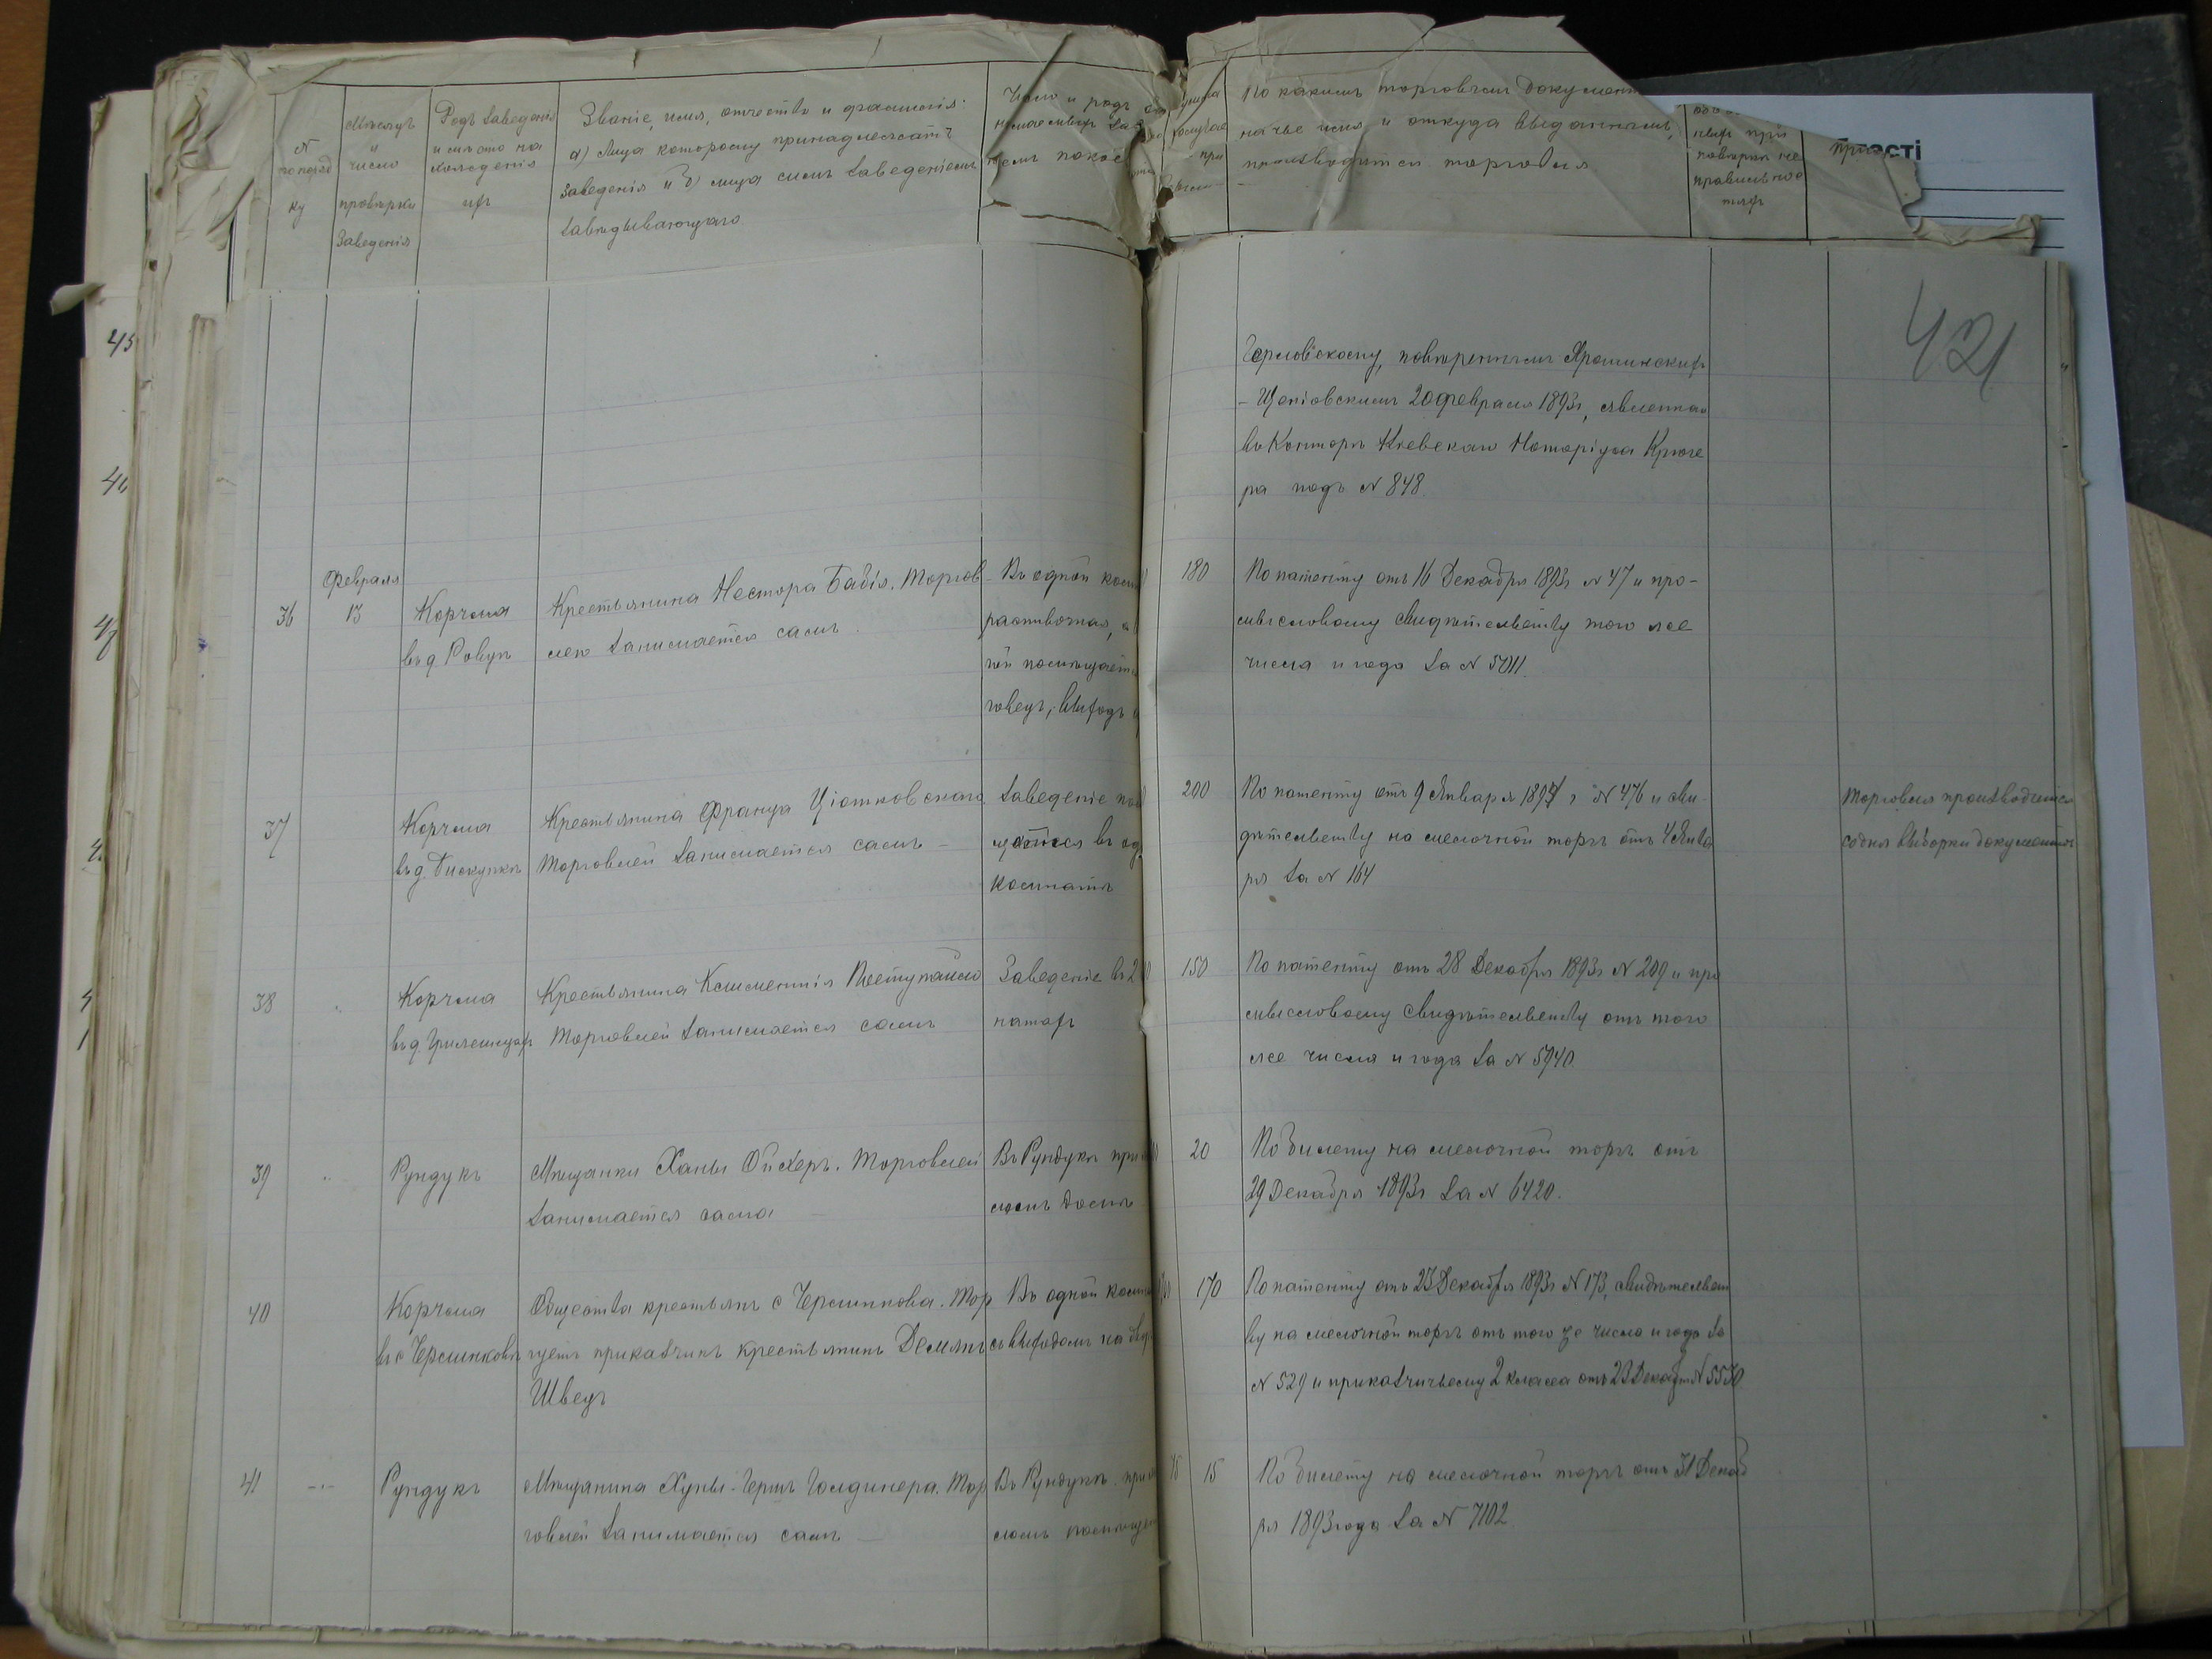 №
по поряд
ку
Мѣсяцъ
и
число
провѣрки
Заведенія
Родъ заведенія
и мѣсто на
хожденія
ихъ
Званіе, имя, отчество и фамилія:
а) лица которому принадлежатъ
заведенія и б) лица симъ заведеніемъ
завѣдывающаго
Число и родъ
По какимъ торговымъ документ
на чье имя и откуда выданнымъ,
производится торговля
при
повѣркѣ не
правильнос
тяхъ
421
повѣреннымъ Ярошинскихъ
20 февраля 1893г, явленная
въ Конторѣ Кіевскаго Нотаріуса Крюге
ра подъ № 848.
36
Февраля
13
Корчма
въ д. Ровцѣ
Крестьянина Нестора Бабія. Торгов
лею занимается самъ.
Въ одной комн
распивочная, а
гой помѣщается
говецъ; выходъ
180
По патенту отъ 16 Декабря 1893г № 47 и про-
мысловому свидѣтельству того же
числа и года за № 5011.
37
Корчма
въ д. Бискупкѣ
Крестьянина Франца Ціотковскаго
Торговлей занимается самъ –
Заведеніе пом
щается въ од
комнатѣ
200
По патенту отъ 9 Января 1894 г № 476 и сви-
дѣтельству на мелочной торгъ отъ 4 Янва
ря за № 164
Торговля производится
со дня выборки документовъ
38
Корчма
въ д.
Крестьянина Климентія
Торговлей занимается самъ
Заведеніе въ 2
натахъ
150
По патенту отъ 28 Декабря 1893г № 209 и про
мысловому свидѣтельству отъ того
же числа и года за № 5940.
39
Рундукъ
Мѣщанки Ханы Ойхеръ. Торговлей
занимается сама –
Въ Рундукѣ при
момъ домѣ
20
По билету на мелочной торгъ отъ
29 Декабря 1893г за № 6420.
40
Корчма
въ с Чермшковѣ
Общества крестьянъ с Чермшкова. Тор
гуетъ прикащикъ крестьянинъ Демьянъ
Шведъ
Въ одной комн
съ выходомъ на
170
По патенту отъ 23 Декабря 1893г № 173, свидѣтельст
ву на мелочной торгъ отъ того же числа и года за
№ 529 и прикащичьему 2 класса отъ 23 Декабря № 5530
41
-"-
Рундукъ
Мѣщанина Хуны-Герша Голдинера. Тор
говлей занимается самъ –
Въ Рундукѣ при
момъ помѣще
15
По билету на мелочной торгъ отъ 31 Декаб
ря 1893 года за № 7102.